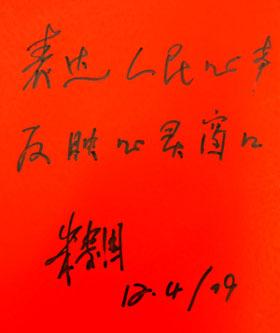 表达人民心声
反映心灵窗口
12.4/29